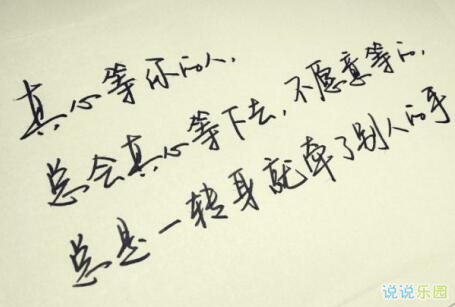 真心等你的人，
总会真心等下去，不愿意等的，
总是一转身就牵了别人的手
说说乐园